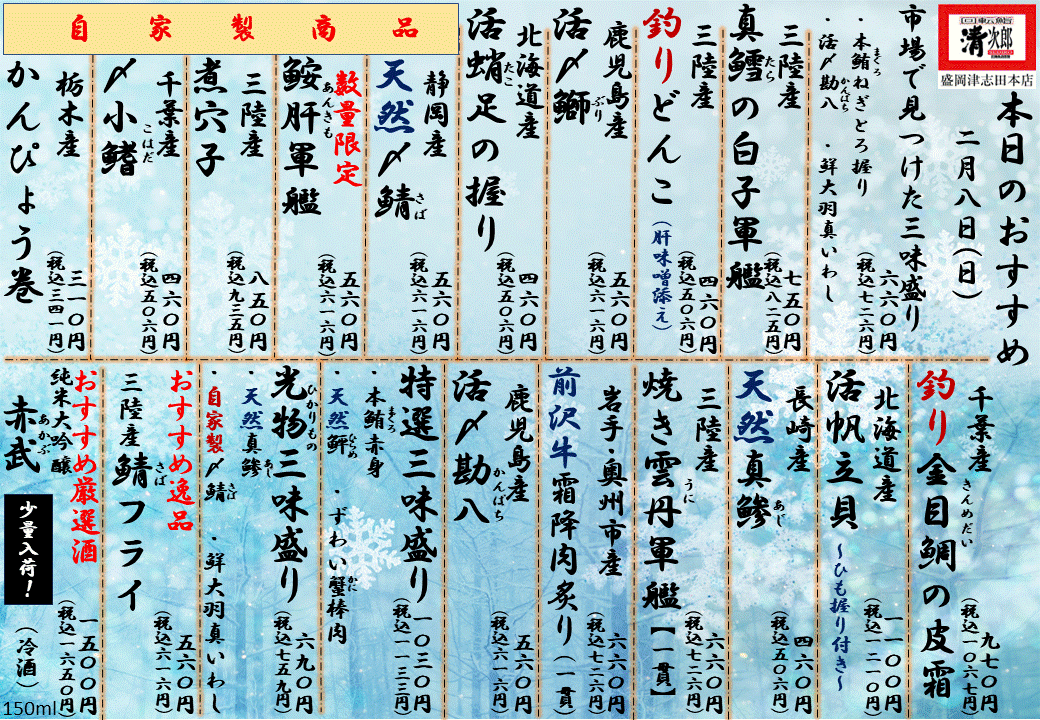 回転鮨
清次郎
盛岡津志田本店
本日のおすすめ
二月八日(日)
市場で見つけた三味盛り
・本鮪ねぎとろ握り
まぐろ
・活〆勘八
かんぱち
・鮮大羽真いわし
六六〇円
(税込七二六円)
三陸産
真鱈の白子軍艦
たら
七五〇円
(税込八二五円)
三陸産
釣りどんこ(肝味噌添え)
四六〇円
(税込五〇六円)
鹿児島産
活〆鰤
ぶり
五六〇円
(税込六一六円)
北海道産
活蛸足の握り
たこ
四六〇円
(税込五〇六円)
静岡産
天然〆鯖
さば
五六〇円
(税込六一六円)
自家製商品
数量限定
鮟肝軍艦
あんきも
五六〇円
(税込六一六円)
三陸産
煮穴子
八五〇円
(税込九三五円)
千葉産
〆小鰭
こはだ
四六〇円
(税込五〇六円)
栃木産
かんぴょう巻
三一〇円
(税込三四一円)
千葉産
釣り金目鯛の皮霜
きんめだい
九七〇円
(税込一〇六七円)
北海道産
活帆立貝~ひも握り付き~
一一〇〇円
(税込一二一〇円)
長崎産
天然真鯵
あじ
四六〇円
(税込五〇六円)
三陸産
焼き雲丹軍艦【一貫】
うに
六六〇円
(税込七二六円)
岩手・奥州市産
前沢牛霜降肉炙り(一貫)
六六〇円
(税込七二六円)
鹿児島産
活〆勘八
かんぱち
五六〇円
(税込六一六円)
特選三味盛り
・本鮪赤身
まぐろ
・天然鮃
ひらめ
・ずわい蟹棒肉
かに
一〇三〇円
(税込一一三三円)
光物三味盛り
ひかりもの
・天然真鯵
あじ
・自家製〆鯖
さば
・鮮大羽真いわし
六九〇円
(税込七五九円)
おすすめ逸品
三陸産鯖フライ
さば
五六〇円
(税込六一六円)
おすすめ厳選酒
純米大吟醸
赤武
あかぶ
少量入荷!
(冷酒)
一五〇〇円
(税込一六五〇円)
150ml